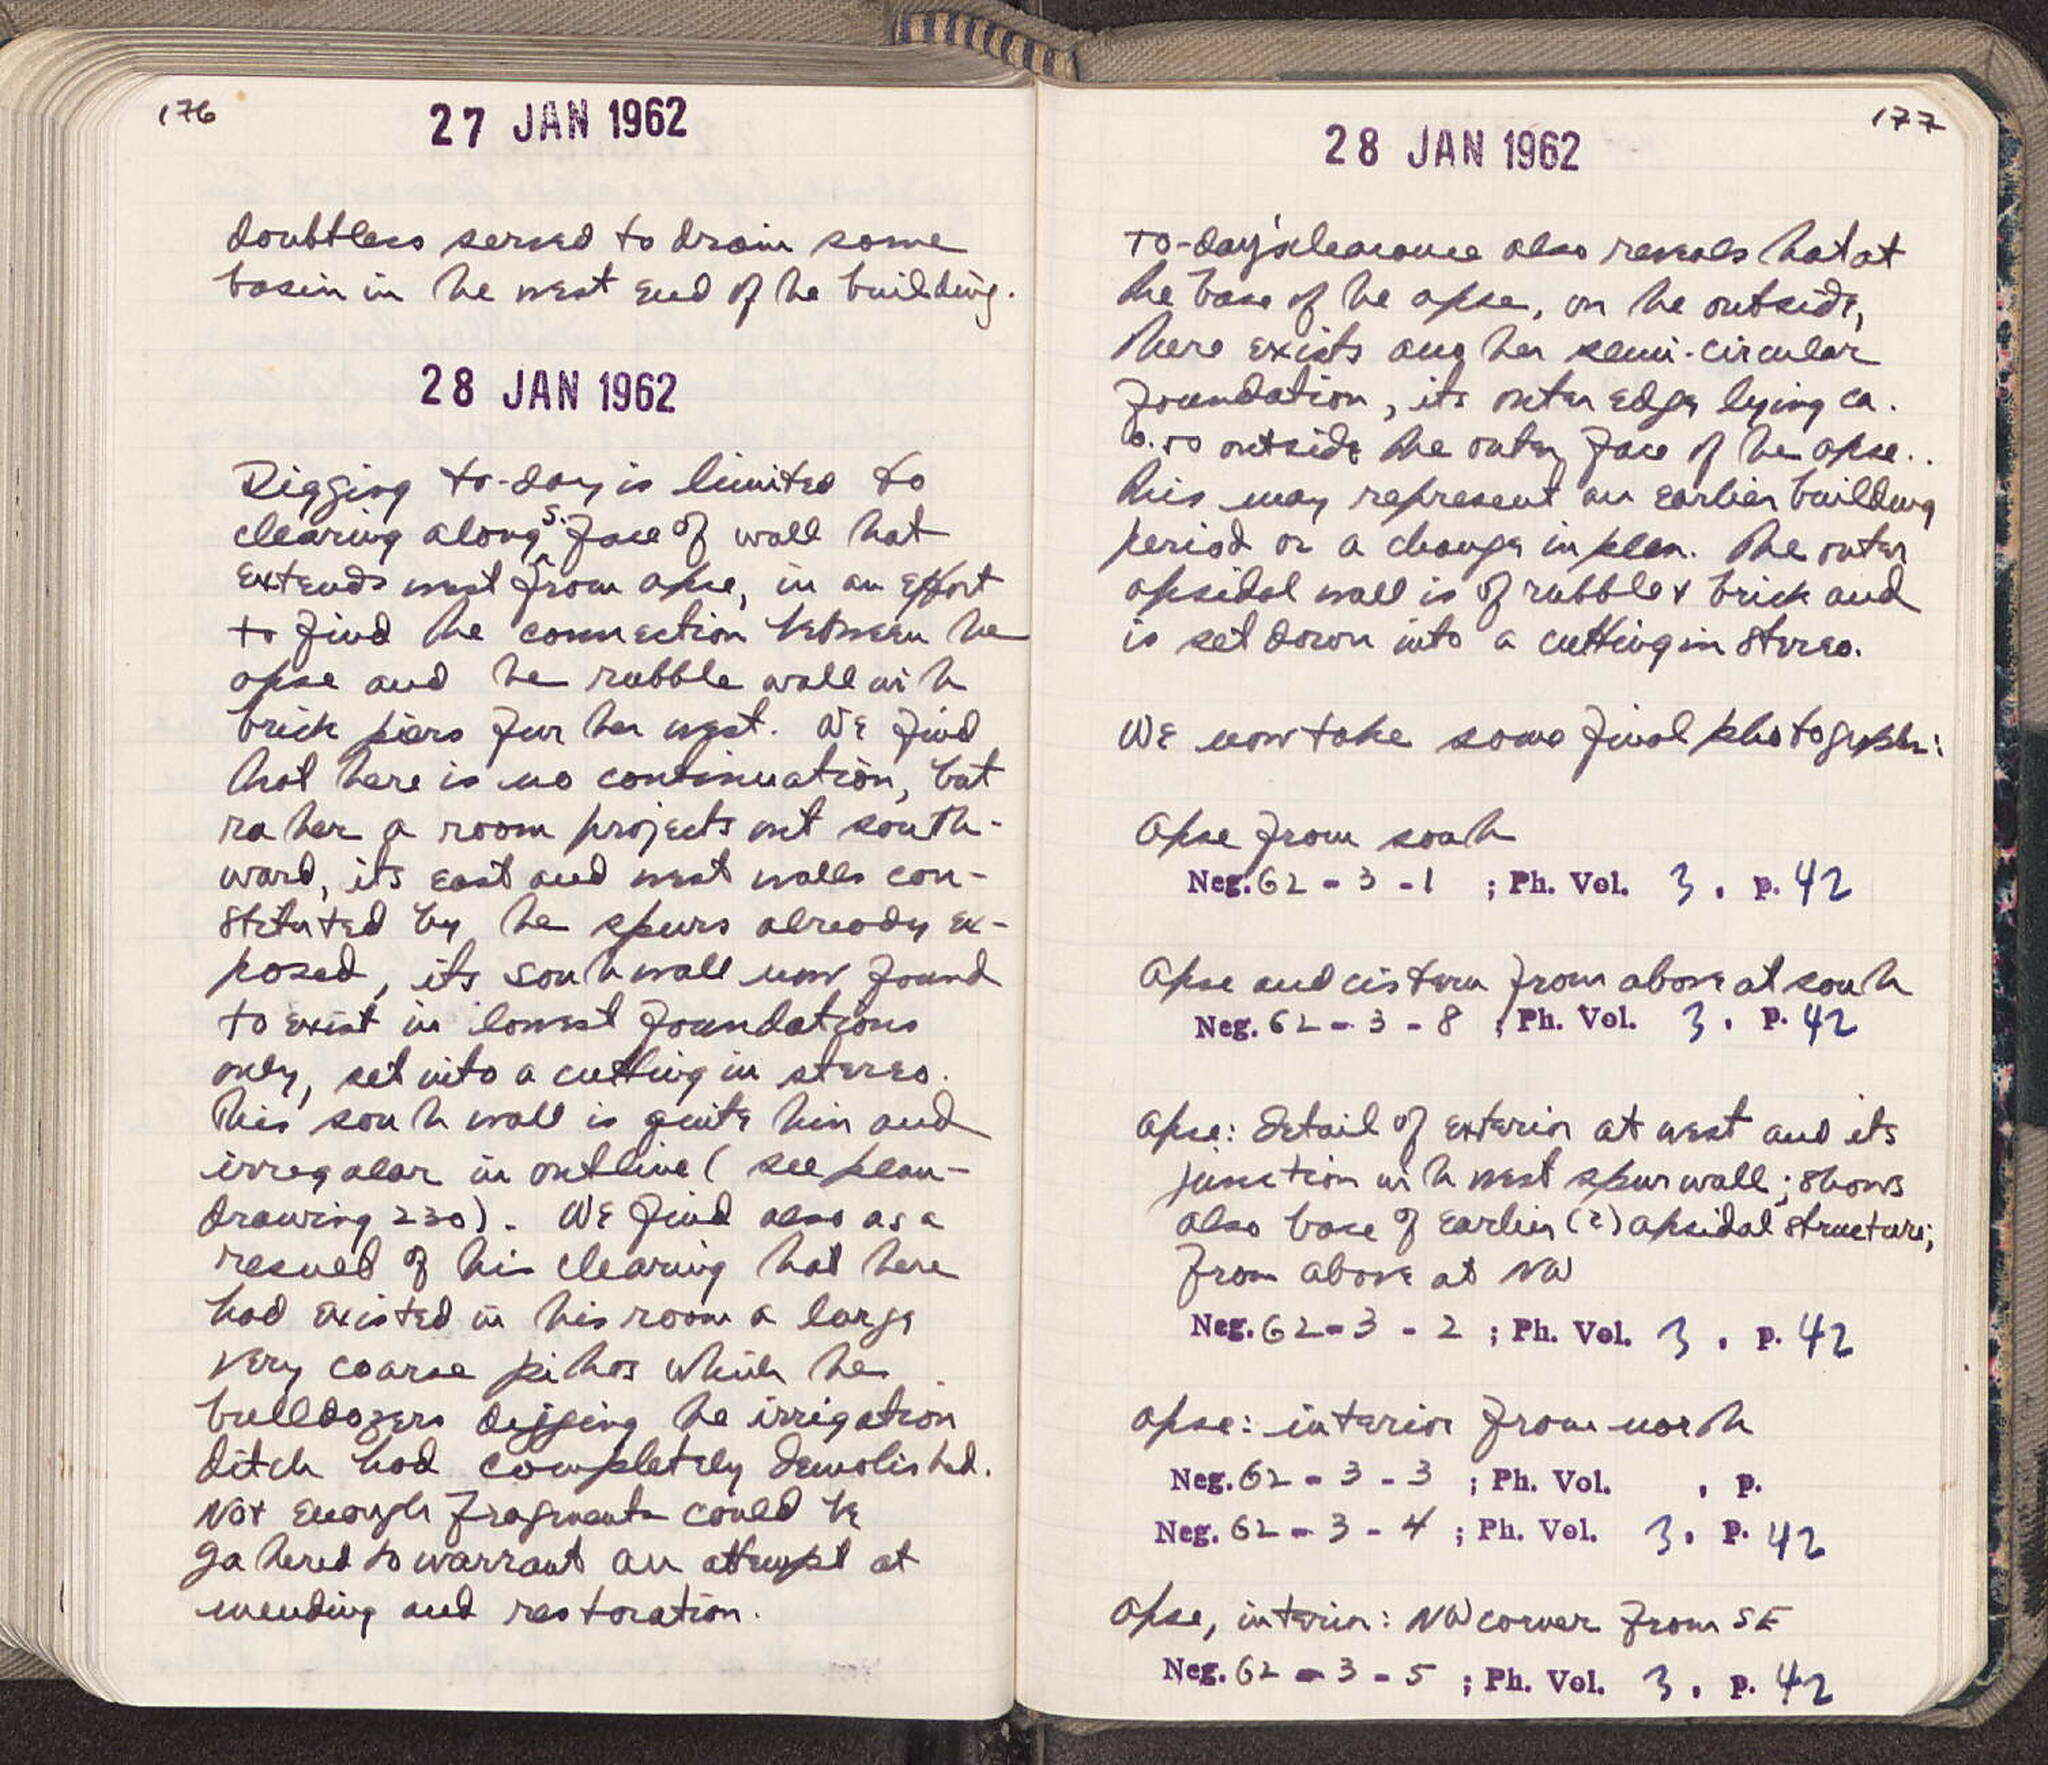 176
27 JAN 1962
doubtless served to drain some
basin in the west end of the building.
28 JAN 1962
Digging to-day is limited to
clearing along S. face of wall that
extends west from apse, in an effort
to find the connection between the
apse and the rubble wall with
brick piers further west. We find
that there is no continuation, but
rather a room projects out south-
ward, its east and west walls con-
stituted by the spurs already ex-
posed, its south wall now found
to exist in lowest foundations
only, set into a cutting in stereo.
This south wall is quite thin and
irregular in outline (see plan-
drawing 230). We find also as a
result of this clearing that there
had existed in this room a large
very coarse pithos which the
bulldozers digging the irrigation
ditch had completely demolished.
Not enough fragments could be
gathered to warrant an attempt at
mending and restoration.
177
28 JAN 1962
To-day's clearance also reveals that at
the base of the apse, on the outside,
there exists another semi-circular
foundation, its outer edge lying ca.
0.50 outside the outer face of the apse..
This may represent an earlier building
period or a change in plan. The outer
apsidal wall is of rubble & brick and
is set down into a cutting in stereo.
We now take some final photographs:
Apse from south
Neg. 62 - 3 - 1 ; Ph. Vol. 3 , p. 42
Apse and cistern from above at south
Neg. 62 - 3 - 8 ; Ph. Vol. 3 , p. 42
Apse: detail of exterior at west and its
junction with west spur wall; shows
also base of earlier (?) apsidal structure;
from above at NW
Neg. 62 - 3 - 2 ; Ph. Vol. 3 , p. 42
Apse: interior from north
Neg. 62 - 3 - 3 ; Ph. Vol. , p.
Neg. 62 - 3 - 4 ; Ph. Vol. 3 , p. 42
Apse, interior: NW corner from SE
Neg. 62 - 3 - 5 ; Ph. Vol. 3 , p. 42